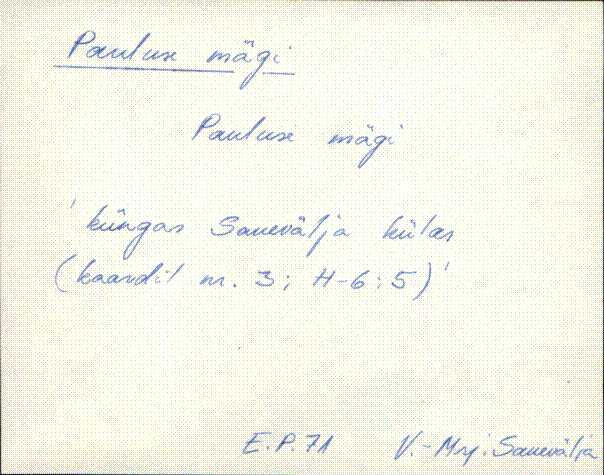 Pauluse mägi
Pauluse mägi
'küngas Sauevälja külas
(kaardil nr. 3; H-6:5)'
E.P. 71 V.-Mrj. Sauevälja